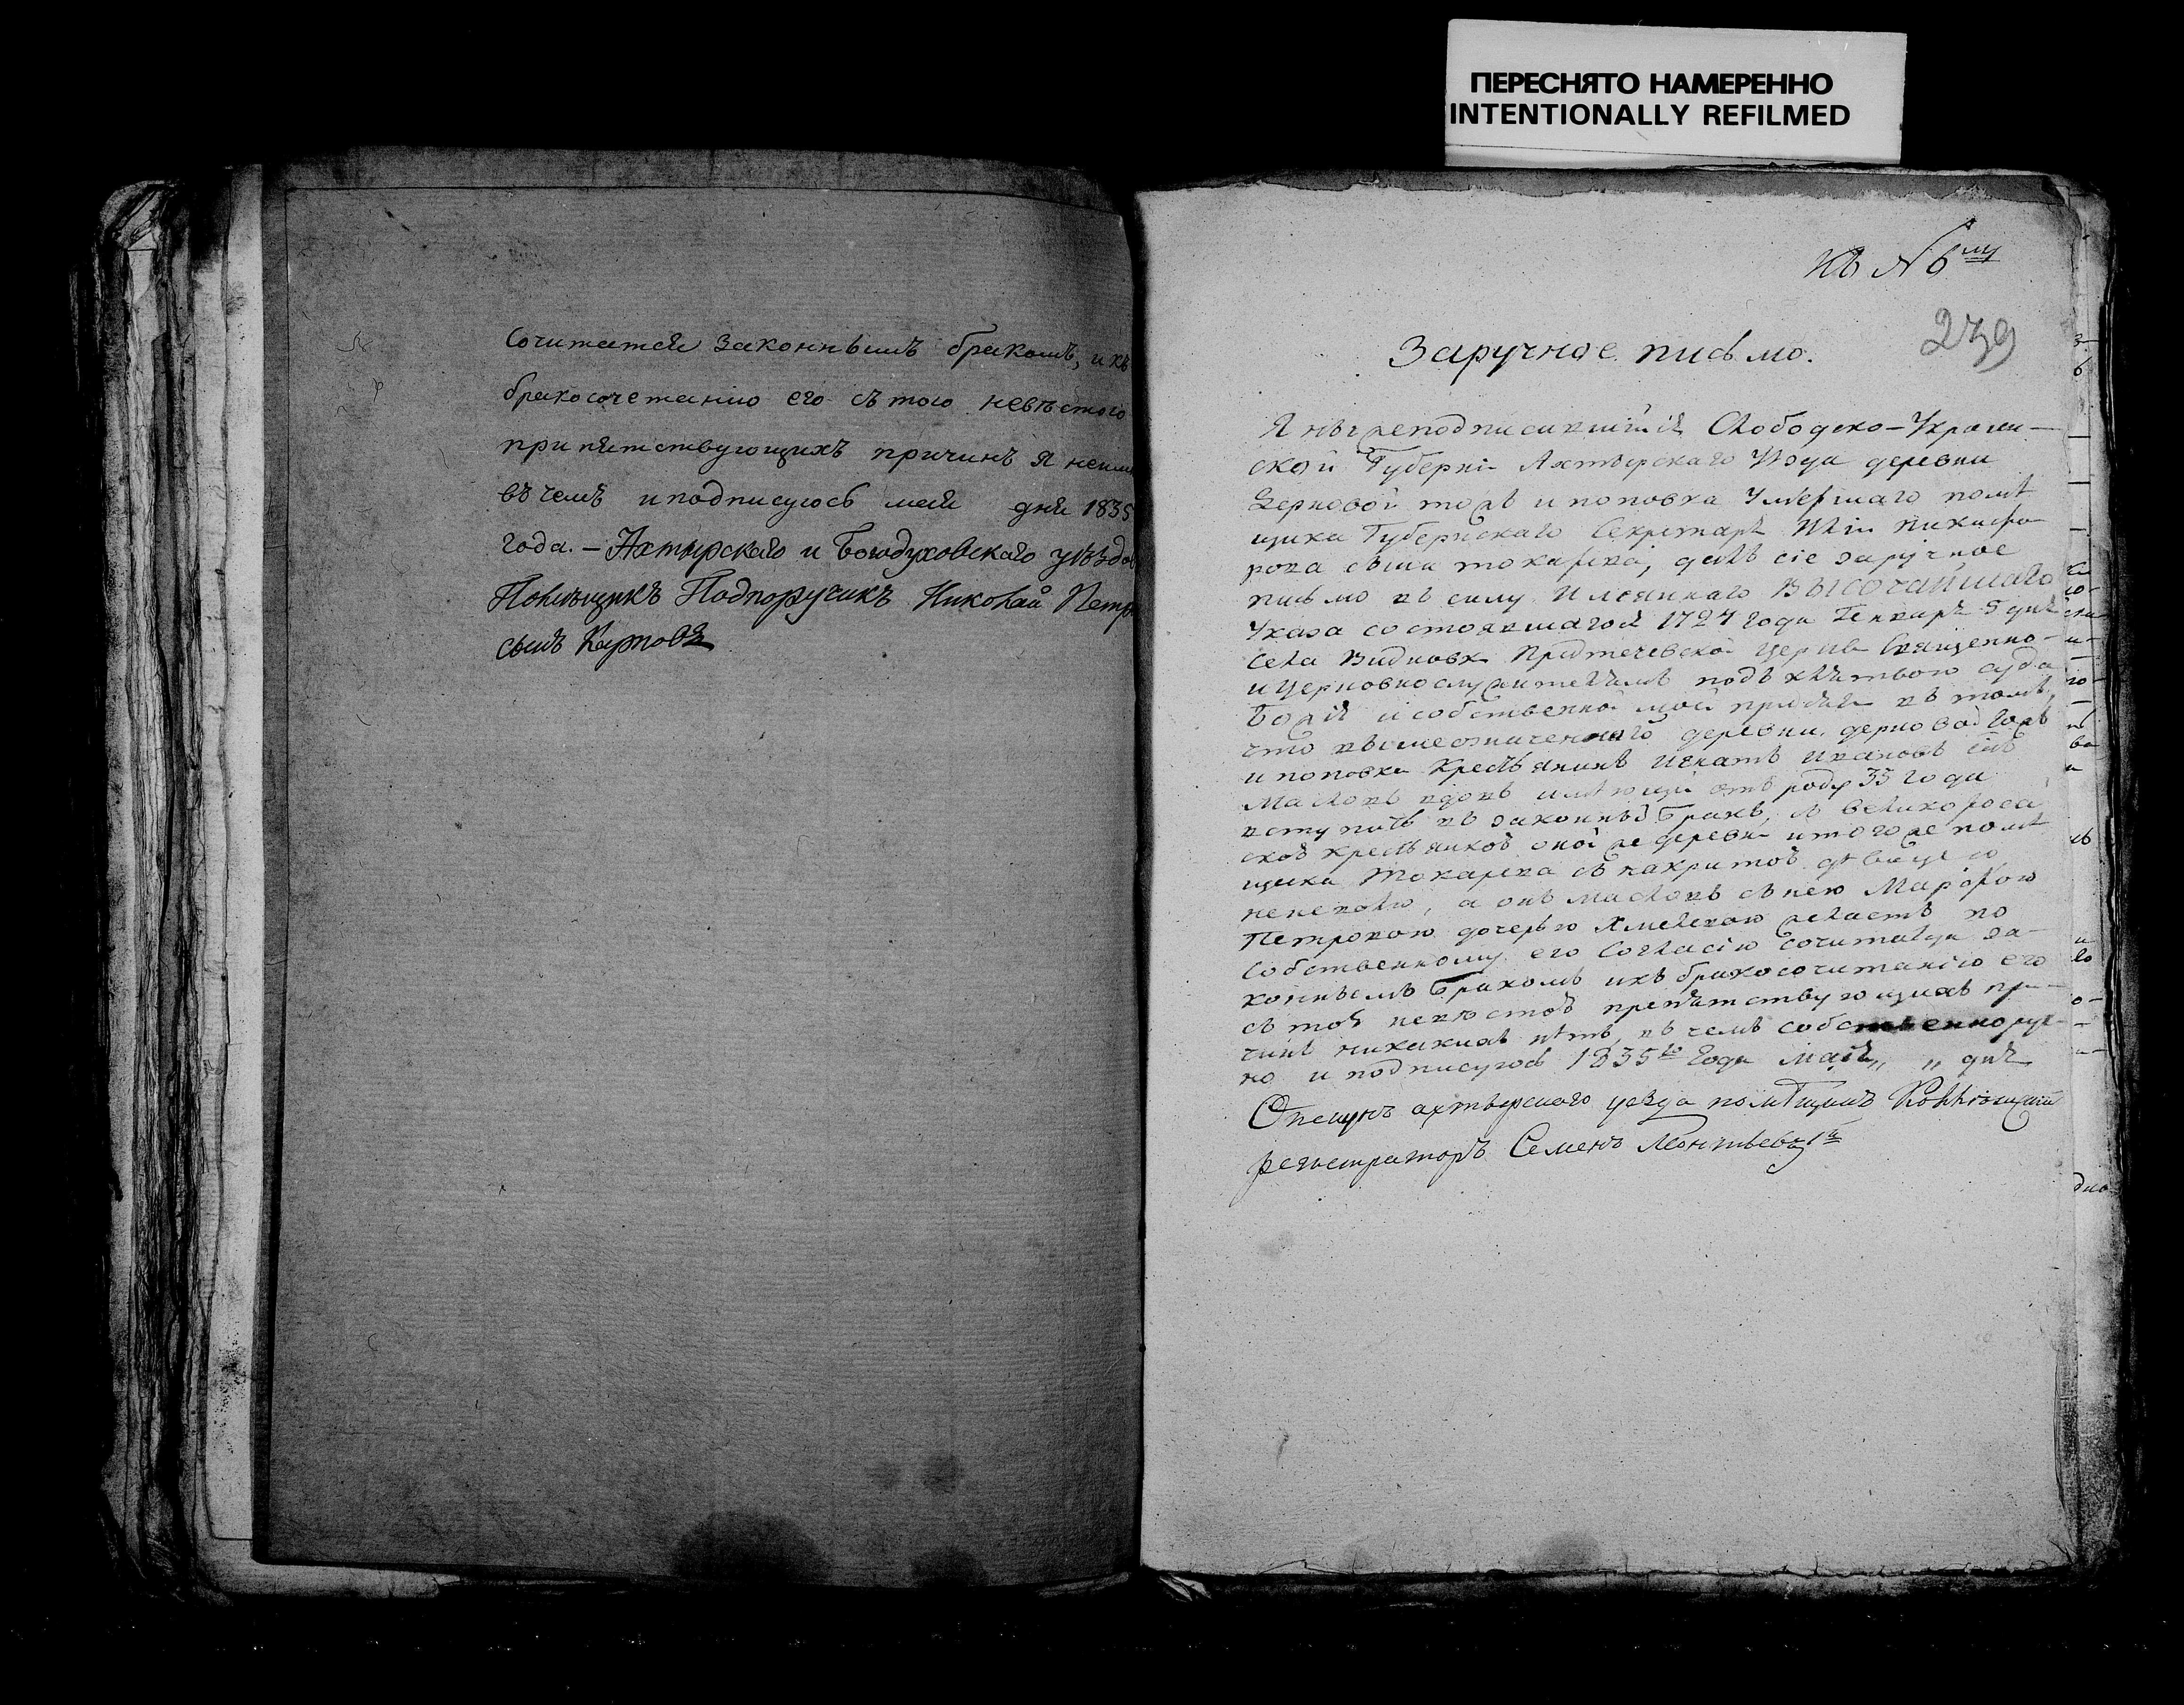 ПЕРЕСНЯТО НАМЕРЕННО
INTENTIONALLY REFILMED
сочитатся законнымъ бракомъ, и къ
бракосочетанию его съ тою невѣстою
припятствующихъ причинъ я неим
въ чемъ и подписуюсь мая дня 1835
года. – Ахтырскаго и Богодуховскаго уѣздов
Помѣщикъ Подпоручикъ Николай Петр
сынъ Карповъ
къ № 6му
239
Заручное письмо.
Я нижеподписавшийся Слободско-Украин-
ской Губерніи Ахтырскаго уѣзда деревни
Дерновой тожъ и поповка умершаго помѣ
щика Губернскаго Секретаря Никифо
рова сына токарева, далъ сіе заручное
письмо въ силу Имяннаго Высочайшаго
Указа состоявшагося 1724 года Генваря 5 дня
села Видновк Предтечевской церкви Священно-
и церковнослужителямъ подъ клятвою суда
Божія и собственной моей присяги въ томъ,
что вышеозначенного деревни дерновой тожъ
и поповки крестьянинъ Игнатъ Ивановъ сынъ
Масловъ вдовъ имѣющи отъ роду 35 года
вступить въ законный бракъ, с великоросій
ской крестьянкой оной же деревни и того же помѣ
щика Токарева съ накритой дѣвицею
неневолю, а онъ масловъ съ нею Марфою
Петровою дочерью Хмелевою желаетъ по
собственному его согласію сочитатца за-
коннымъ бракомъ и къ бракосочитанію его
съ той невѣстой препятствующихъ при-
чинъ никакихъ нѣтъ, въ чемъ собственноруч
но и подписуюсь 1835го года мая „ „ дня
Опекунъ ахтырского уѣзда помѣщикъ Коллежский
регистраторъ Семенъ Леонтьевъ 1й